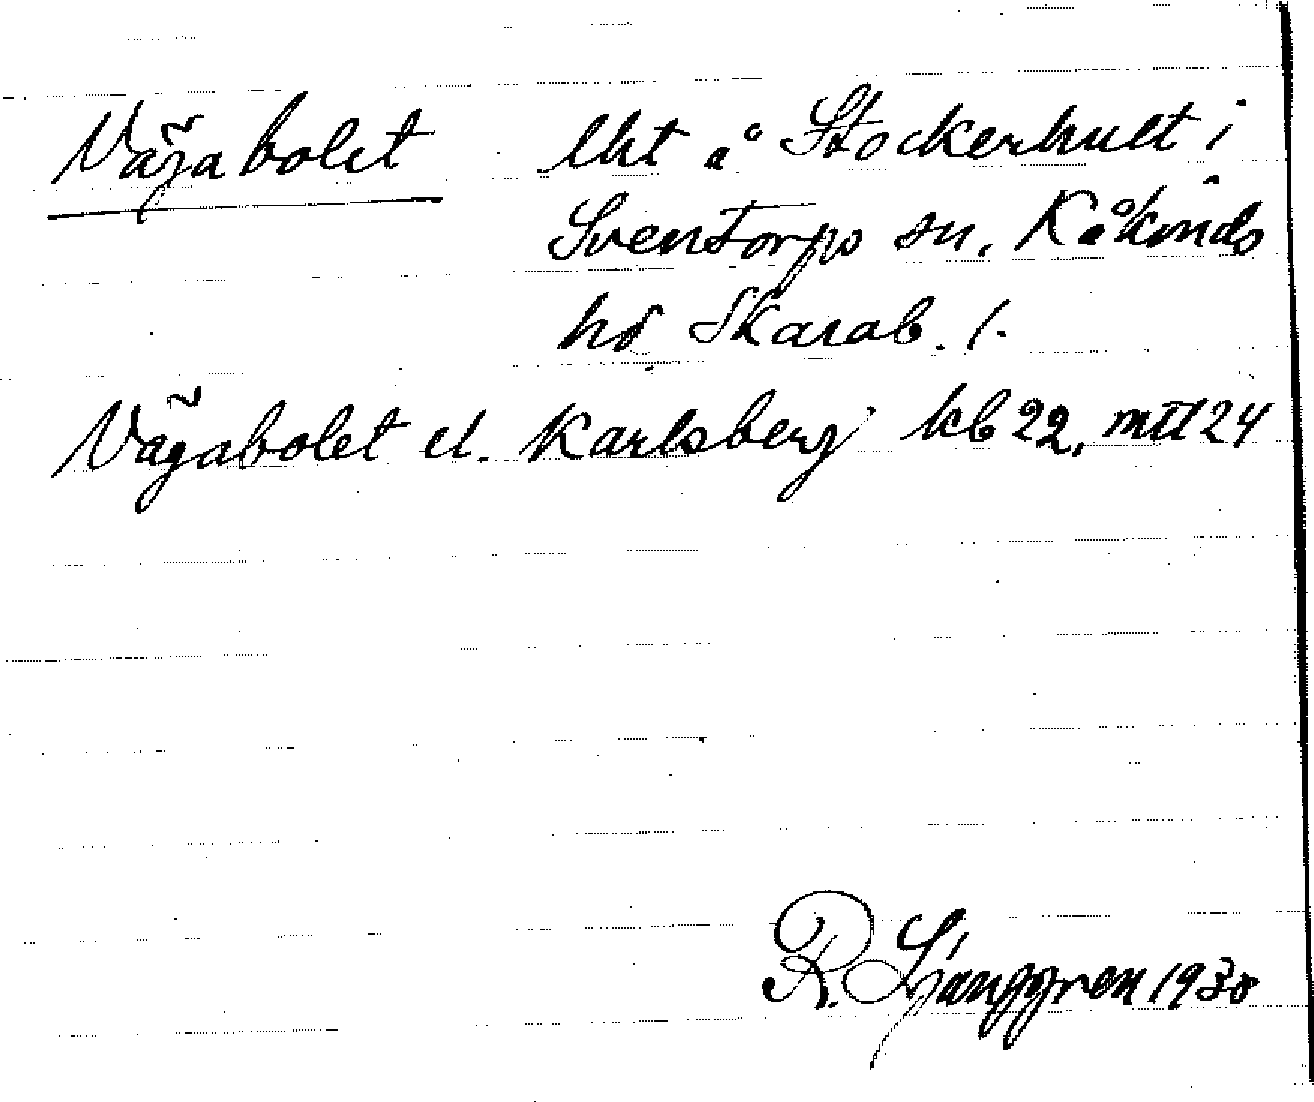 Vägabolet lht å Stockerhult i
Sventorps sn. Kåkinds
hd Skarab. l.
Vägabolet el. Karlsberg kb 22, mtl 24
R. Ljunggren 1930